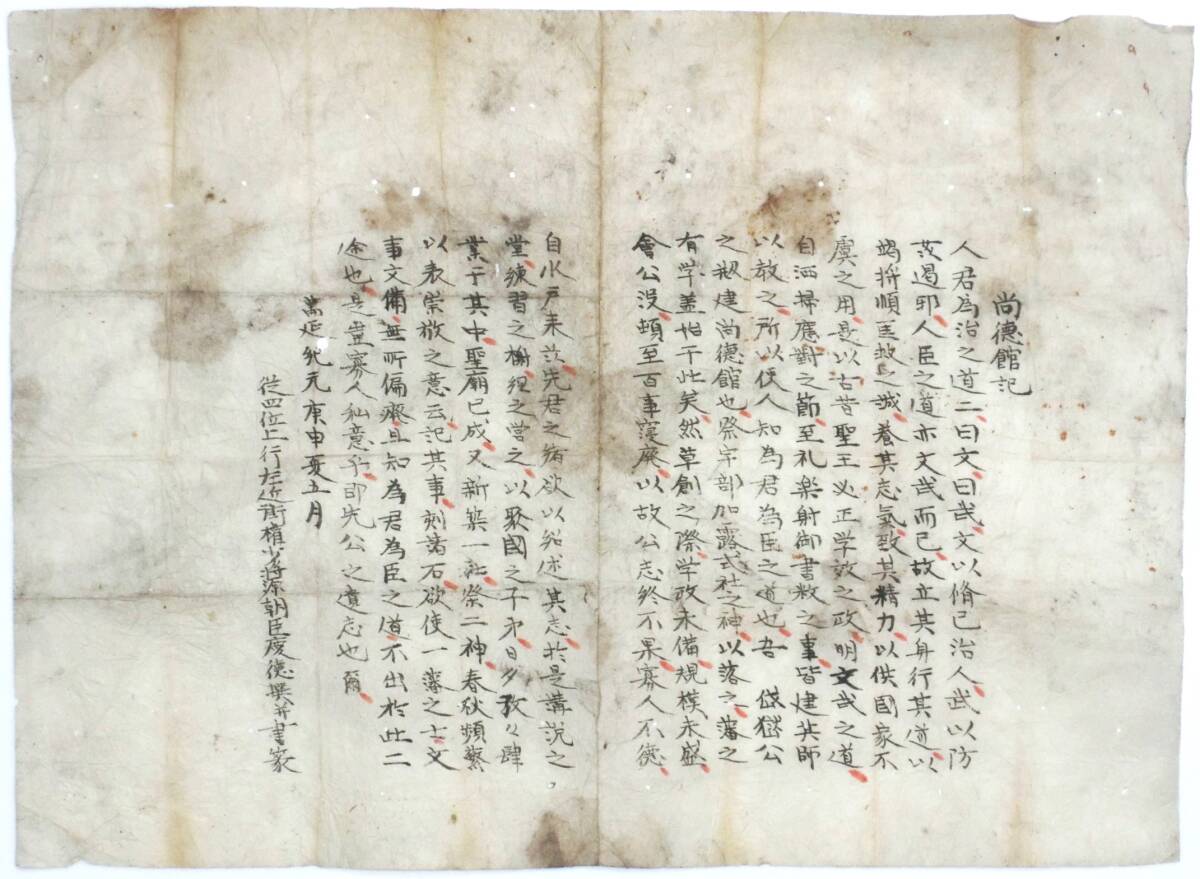 尚德館記
人君為治之道二曰文曰武文以脩己治人武以防
茨遏邪人臣之道亦文武而已故立其身行其道以
竭将順匡救之誠養其志氣致其精力以供國家不
虞之用是以古昔聖王必正学政之政明文武之道
自洒掃應對之節至礼楽射御書数之事皆建其師
以教之所以使人知為君為臣之道也吾 岱嶽公
之刱建尚德館也祭宇部加露式社之神以落之藩之
有学蓋始于此矣然草創之際学政未備規模未盛
會公没頓至百事寝廃以故公志終不果寡人不徳
自水戸来茨先君之緒欲以紹述其志於是講説之
堂練習之榭經之営之以聚國之子弟日夕孜々肆
業于其中聖廟已成又新築一社祭二神春秋頻蘩
以表崇敬之意云記其事刻諸石欲使一藩之士文
事文備無所偏廃且知為君為臣之道不出於此二
途也是豈寡人私意乎即先公之遺志也爾
萬延紀元庚申夏五月
従四位上行左近衛権少将源朝臣慶徳撰并書篆